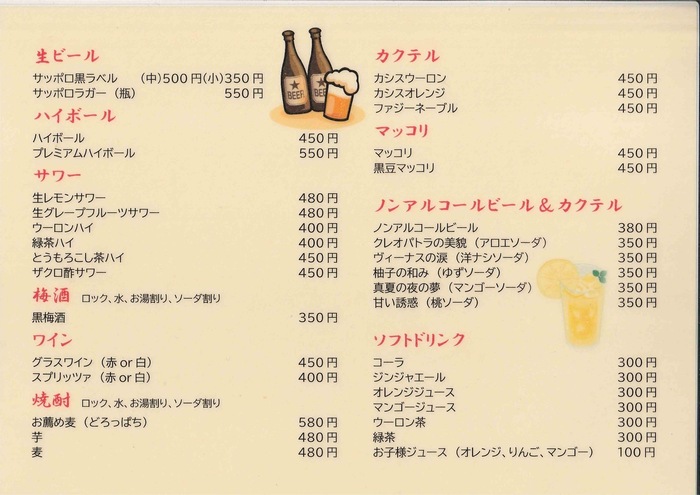 生ビール
サッポロ黒ラベル (中)500円(小)350円
サッポロラガー（瓶） 550円
ハイボール
ハイボール 450円
プレミアムハイボール 550円
サワー
生レモンサワー 480円
生グレープフルーツサワー 480円
ウーロンハイ 400円
緑茶ハイ 400円
とうもろこし茶ハイ 450円
ザクロ酢サワー 450円
梅酒 ロック、水、お湯割り、ソーダ割り
黒梅酒 350円
ワイン
グラスワイン（赤or白） 450円
スプリッツァ（赤or白） 400円
焼酎 ロック、水、お湯割り、ソーダ割り
お薦め麦（どろっぱち） 580円
芋 480円
麦 480円
BEER
BEER
カクテル
カシスウーロン 450円
カシスオレンジ 450円
ファジーネーブル 450円
マッコリ
マッコリ 450円
黒豆マッコリ 450円
ノンアルコールビール＆カクテル
ノンアルコールビール 380円
クレオパトラの美貌（アロエソーダ） 350円
ヴィーナスの涙（洋ナシソーダ） 350円
柚子の和み（ゆずソーダ） 350円
真夏の夜の夢（マンゴーソーダ） 350円
甘い誘惑（桃ソーダ） 350円
ソフトドリンク
コーラ 300円
ジンジャエール 300円
オレンジジュース 300円
マンゴージュース 300円
ウーロン茶 300円
緑茶 300円
お子様ジュース（オレンジ、りんご、マンゴー） 100円